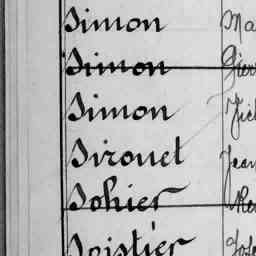 Simon Ma
Simon Pier
Simon Mich
Sirouet Jean
Sohier Re
Soistier Jose